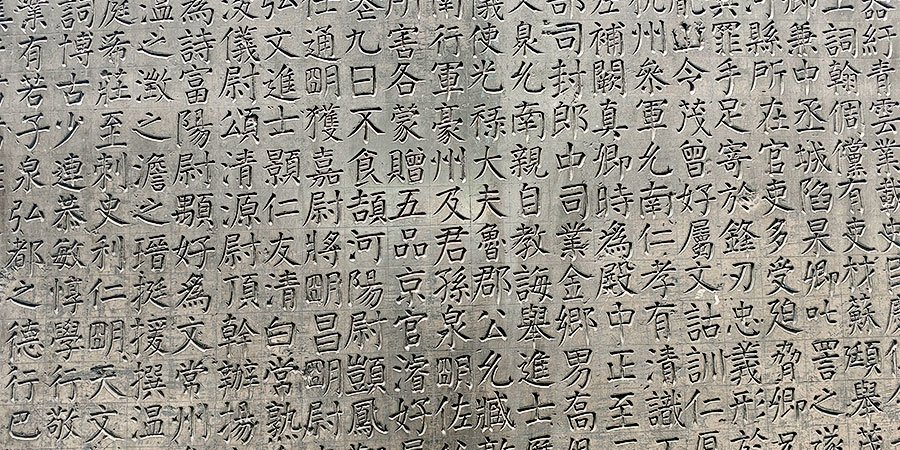 紆青雲業獻史
詞翰倜儻有吏材蘇頲舉茂
卿兼中丞城陷杲卿叱詈之遂
河縣所在官吏多受廹脅卿兄
其罪手足寄於鋒刃忠義形於
並令茂曾好屬文詁訓仁厚
杭州叅軍允南仁孝有清識
左補闕真卿時為殿中正至
部司封郎中司業金鄉男高
泉允南親自教誨舉進士
義使光祿大夫魯郡公允臧
南行軍豪州及君孫泉明佐
所害各蒙贈五品京官濬好
叁九日不食頡河陽尉顗鳳
任通明獲嘉尉將明昌明尉
弘文進士顥仁友清白常熟
浚儀尉頌清源尉頂幹辦揚
為詩富陽尉顒好為文常州
温之澂之澹之瑨挺援撰温
庭希莊至刺史利仁明天文
詞博古少連恭敏惇學行敬
業有若子泉弘都之德行巴